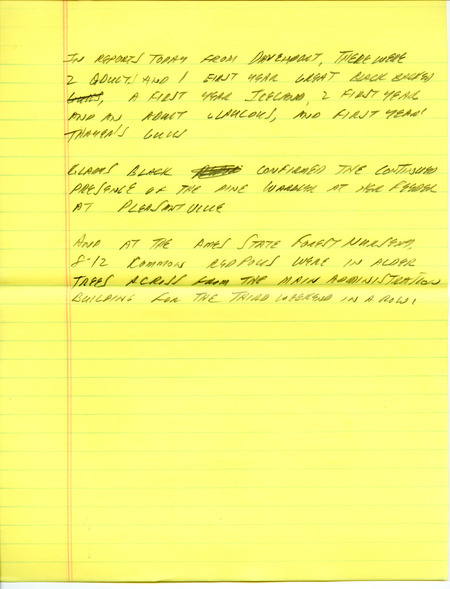 IN REPORTS TODAY FROM DAVENPORT, THERE WERE
2 ADULTS AND 1 FIRST YEAR GREAT BLACK BACKED
GULLS, A FIRST YEAR ICELAND, 2 FIRST YEAR
AND AN ADULT GLAUCOUS, AND FIRST YEAR
THAYER'S GULLS
BLACK CONFIRMED THE CONTINUED
PRESENCE OF THE PINE WARBLER AT HER FEEDER
AT PLEASANTVILLE
AND AT THE AMES STATE FOREST NURSERY,
8-12 COMMON REDPOLLS WERE IN ALDER
TREES ACROSS FROM THE MAIN ADMINISTRATION
BUILDING FOR THE THIRD WEEKEND IN A ROW.